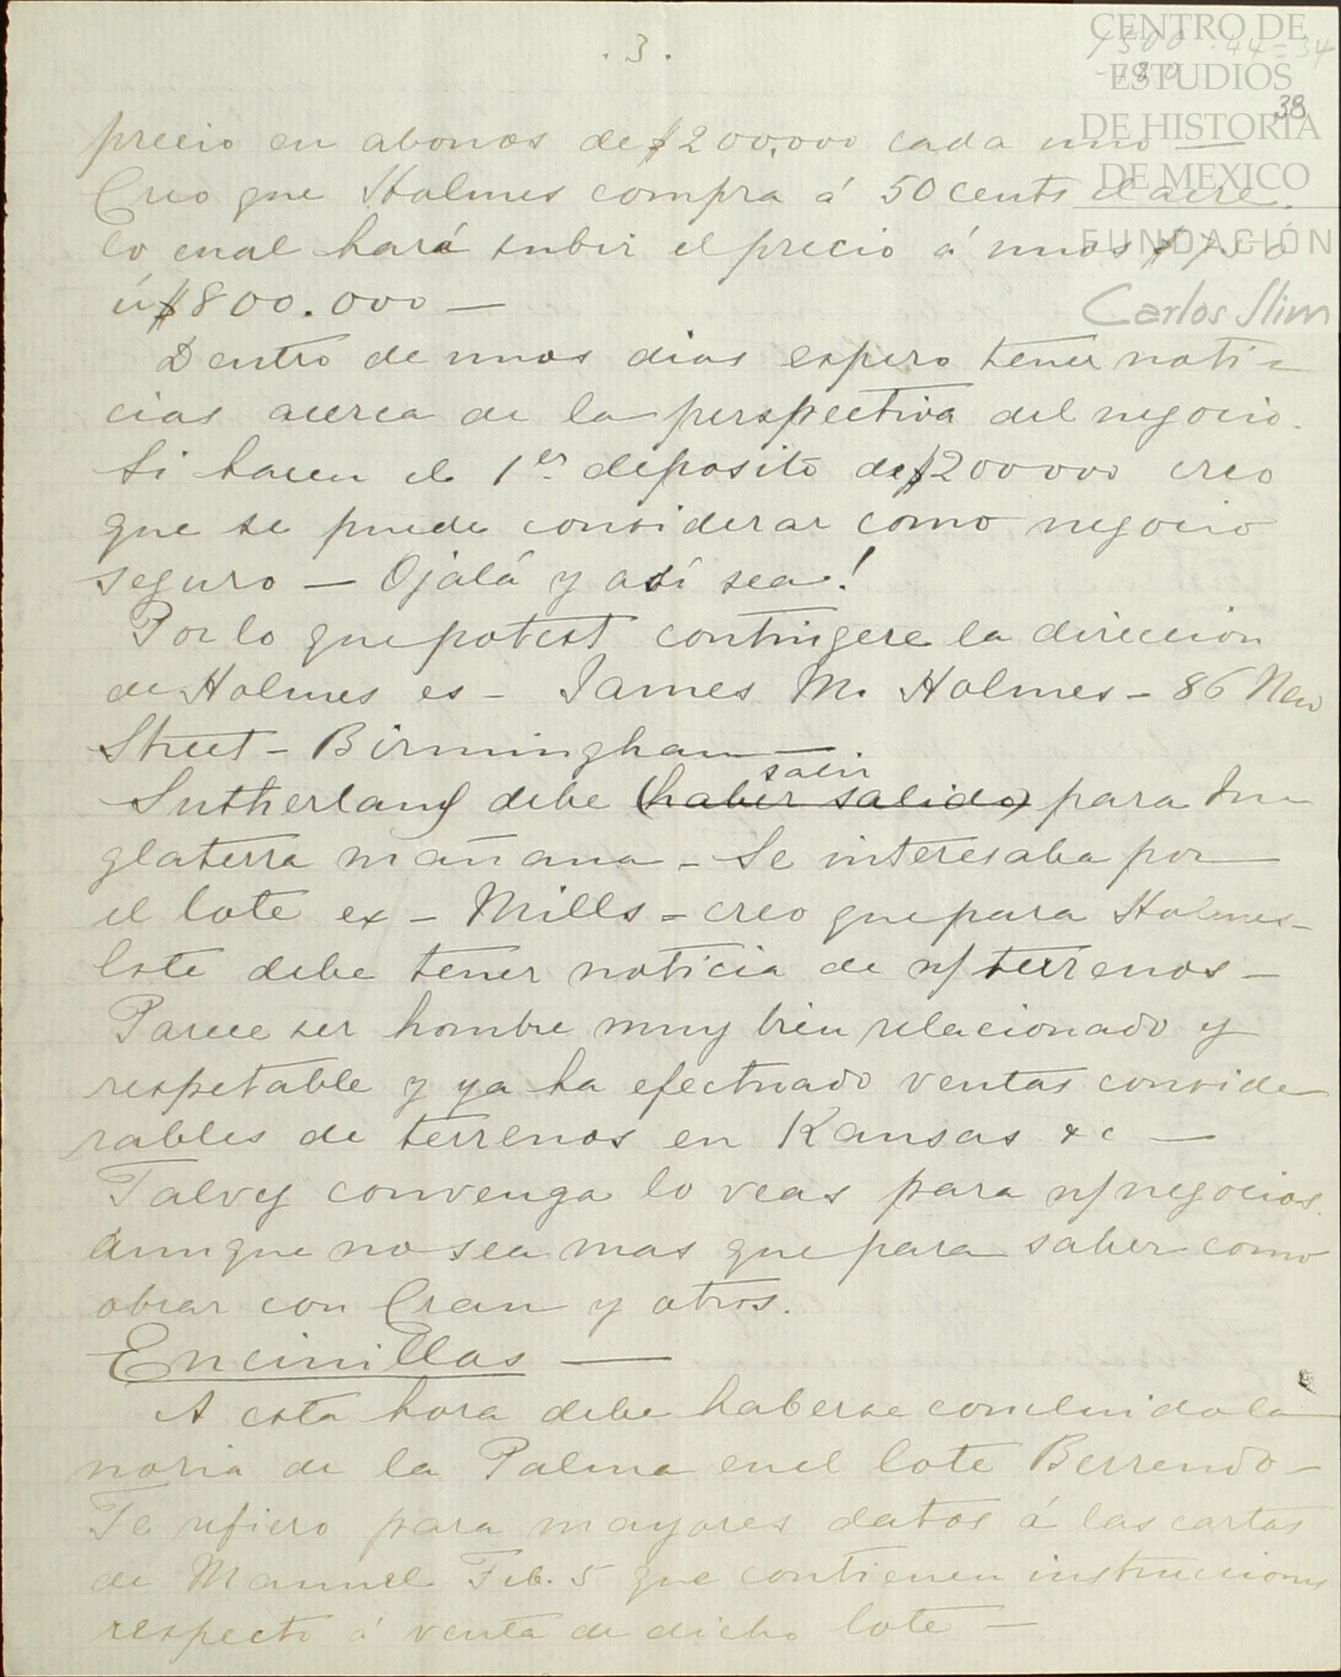 . 3 .
CENTRO DE
ESTUDIOS
DE HISTORIA
DE MEXICO
FUNDACIÓN
Carlos Slim
38
precio en abonos de $200,000 cada uno —
Creo que Holmes compra á 50 cents el acre.
lo cual hará subir el precio á unos
ú $800.000 —
Dentro de unos dias espero tener noti-
cias acerca de la perspectiva del negocio.
Si hacen el 1er. deposito de $200000 creo
que se puede considerar como negocio
seguro — Ojalá y así sea!
Por lo que potest contingere la direccion
de Holmes es - James M. Holmes - 86 New
Street - Birmingham —
salir
Sutherland debe (haber salido) para In-
glaterra mañana - Se interesaba por
el lote ex - Mills - creo que para Holmes -
Este debe tener noticia de n/ terrenos -
Parece ser hombre muy bien relacionado y
respetable y ya ha efectuado ventas conside
rables de terrenos en Kansas &c —
Talvez convenga lo veas para n/ negocios.
aunque no sea mas que para saber como
obrar con Cran y otros.
Encinillas —
A esta hora debe haberse concluido la
noria de la Palma en el lote Berrendo -
Te refiero para mayores datos á las cartas
de Manuel Feb. 5 que contienen instrucciones
respecto á venta de dicho lote —